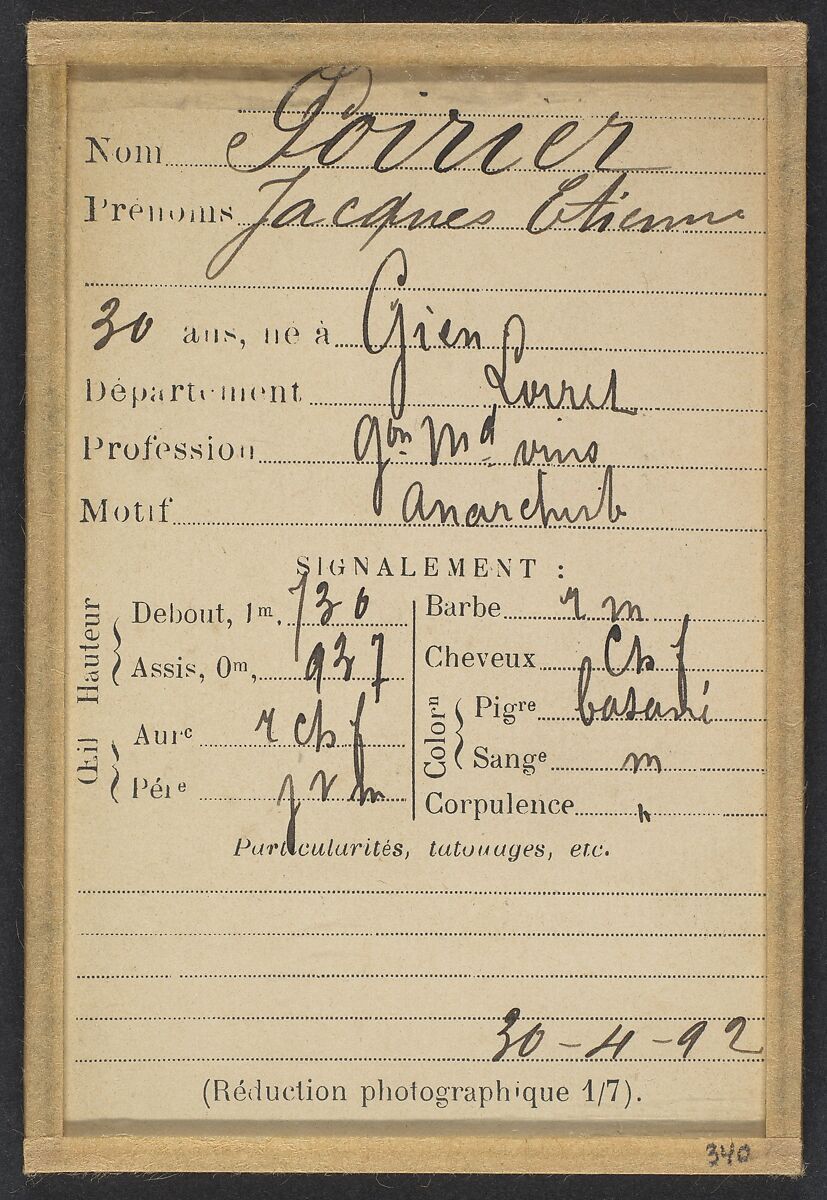 Nom Poirier
Prénoms Jacques Etienne
30 ans, né à Gien
Département Loiret
Profession gon Md vins
Motif Anarchiste
SIGNALEMENT :
Hauteur
Debout, 1m, 730
Assis, 0m, 927
Œil
Aurc r ch f
Pére j v m
Barbe r m
Cheveux Ch f
Colorn
Pigre basané
Sange m
Corpulence "
Particularités, tatouages, etc.
30-4-92
(Réduction photographique 1/7).
340